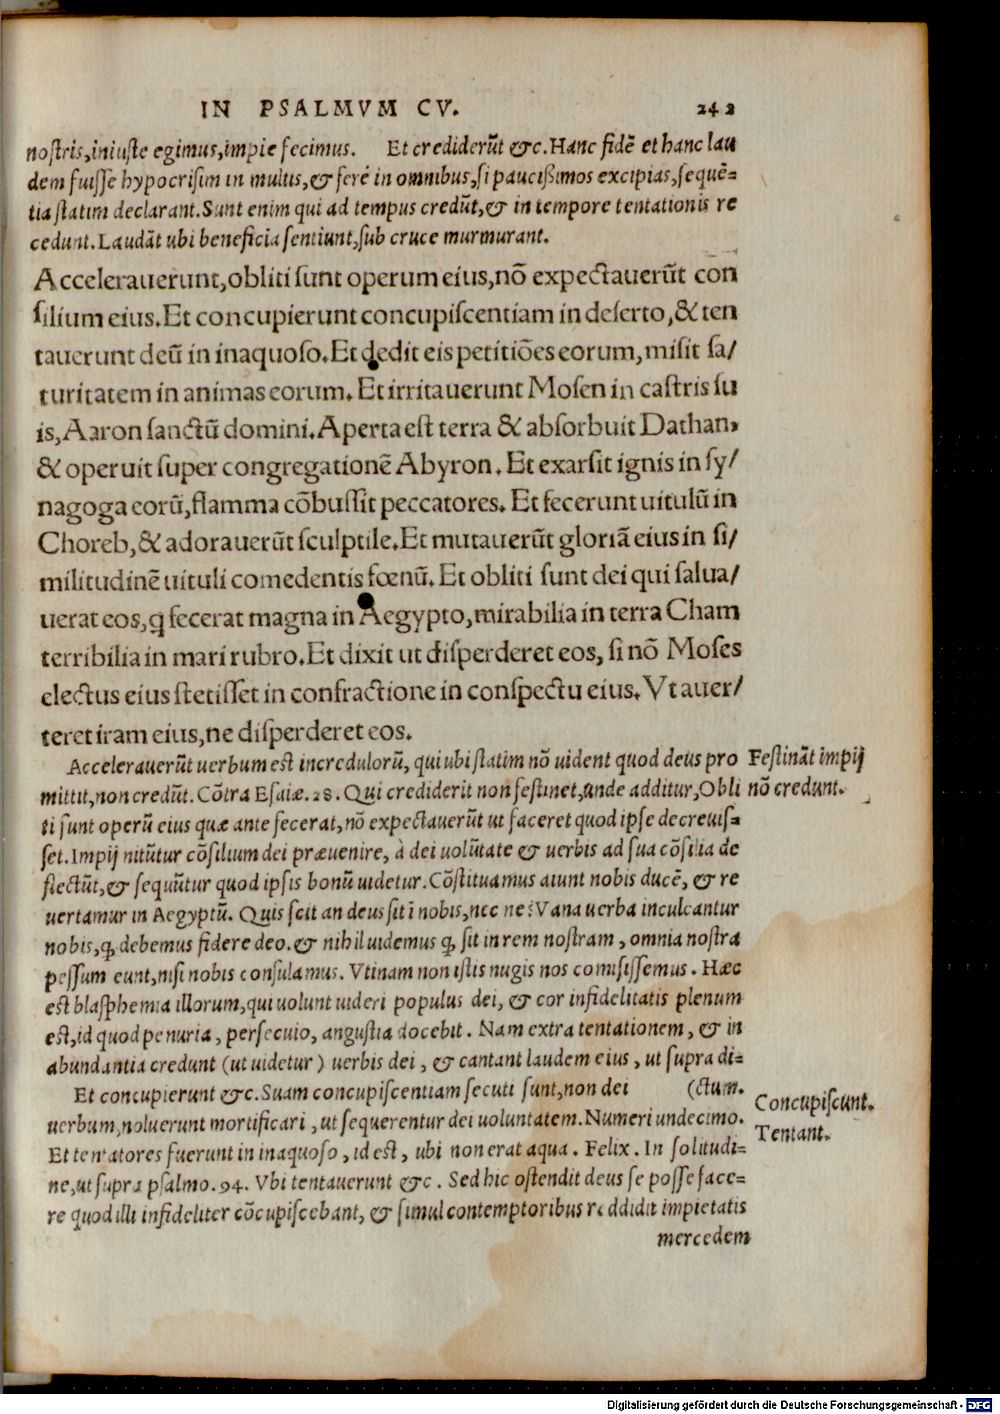 IN PSALMVM CV. 242
nostris,iniuste egimus,impie fecimus. Et crediderūt &c.Hanc fidē et hanc lau
dem fuisse hypocrisim in multis,& ferè in omnibus,si paucißimos excipias,sequē=
tia statim declarant.Sunt enim qui ad tempus credūt,& in tempore tentationis re
cedunt.Laudāt ubi beneficia sentiunt,sub cruce murmurant.
Accelerauerunt,obliti sunt operum eius,nō expectauerūt con
silium eius.Et concupierunt concupiscentiam in deserto,& ten
tauerunt deū in inaquoso.Et dedit eis petitiōes eorum,misit sa/
turitatem in animas eorum. Et irritauerunt Mosen in castris su
is,Aaron sanctū domini.Aperta est terra & absorbuit Dathan,
& operuit super congregationē Abyron. Et exarsit ignis in sy/
nagoga eorū,flamma cōbussit peccatores. Et fecerunt uitulū in
Choreb,& adorauerūt sculptile.Et mutauerūt gloriā eius in si/
militudinē uituli comedentis fœnū. Et obliti sunt dei qui salua/
uerat eos,q fecerat magna in Aegypto,mirabilia in terra Cham
terribilia in mari rubro.Et dixit ut disperderet eos, si nō Moses
electus eius stetisset in confractione in conspectu eius. Vt auer/
teret iram eius,ne disperderet eos.
Accelerauerūt uerbum est incredulorū, qui ubi statim nō uident quod deus pro
mittit,non credūt. Cōtra Esaiæ.28. Qui crediderit non festinet,unde additur,Obli
ti sunt operū eius quæ ante fecerat,nō expectauerūt ut faceret quod ipse decreuis=
set.Impij nitūtur cōsilium dei præuenire, à dei uolūtate & uerbis ad sua cōsilia de
flectūt,& sequūtur quod ipsis bonū uidetur. Cōstituamus aiunt nobis ducē, & re
uertamur in Aegyptū. Quis scit an deus sit ī nobis,nec ne? Vana uerba inculcantur
nobis,q̃ debemus fidere deo.& nihil uidemus q̃ sit in rem nostram, omnia nostra
pessum eunt,nisi nobis consulamus. Vtinam non istis nugis nos comisissemus. Hæc
est blasphemia illorum,qui uolunt uideri populus dei, & cor infidelitatis plenum
est,id quod penuria, persecuio, angustia docebit. Nam extra tentationem, & in
abundantia credunt (ut uidetur) uerbis dei, & cantant laudem eius, ut supra di=
Et concupierunt &c.Suam concupiscentiam secuti sunt,non dei (ctum.
uerbum,noluerunt mortificari, ut sequerentur dei uoluntatem.Numeri undecimo.
Et tentatores fuerunt in inaquoso, id est, ubi non erat aqua. Felix. In solitudi=
ne,ut supra psalmo.94. Vbi tentauerunt &c. Sed hic ostendit deus se posse face=
re quod illi infideliter cōcupiscebant, & simul contemptoribus reddidit impietatis
mercedem
Festināt impij
nō credunt.
Concupiscunt.
Tentant.
Digitalisierung gefördert durch die Deutsche Forschungsgemeinschaft - DFG